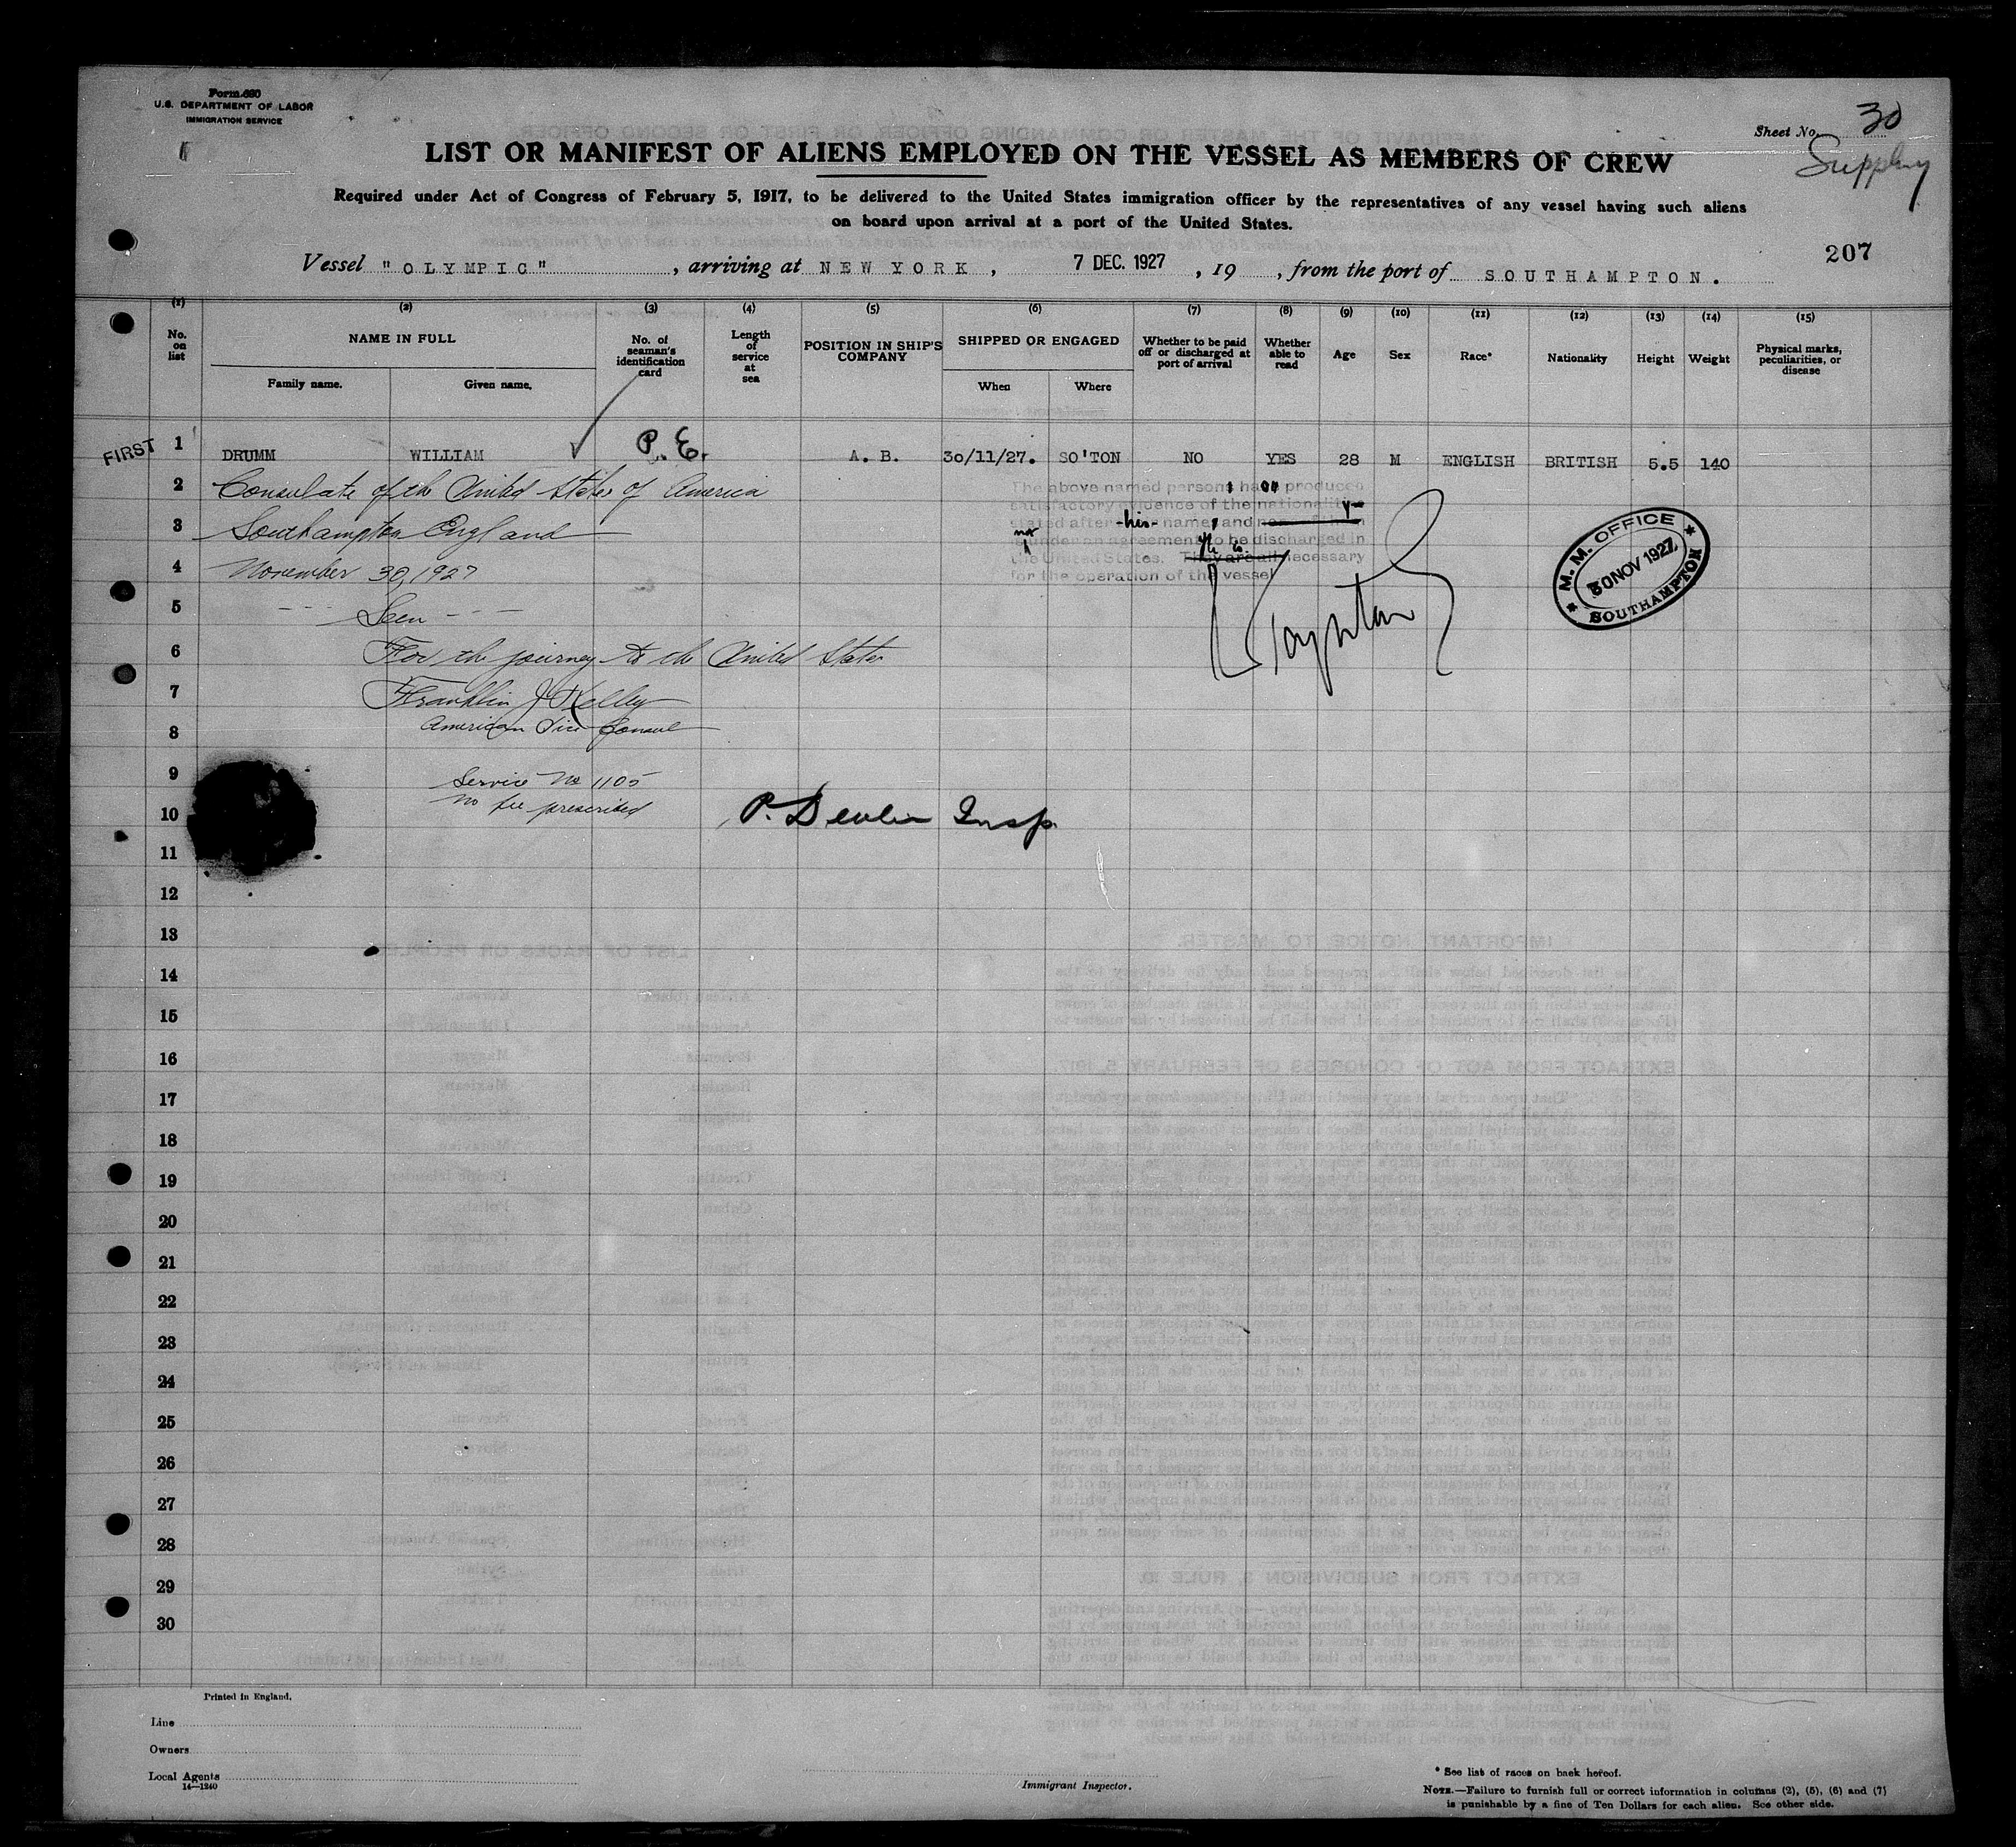 Form 680
U.S. DEPARTMENT OF LABOR
IMMIGRATION SERVICE
Sheet No. 30
Supply
LIST OR MANIFEST OF ALIENS EMPLOYED ON THE VESSEL AS MEMBERS OF CREW
Required under Act of Congress of February 5, 1917, to be delivered to the United States immigration officer by the representatives of any vessel having such aliens
on board upon arrival at a port of the United States.
207
Vessel "OLYMPIC", arriving at NEW YORK, 7 DEC. 1927, 19 , from the port of SOUTHAMPTON.
(1) (2) (3) (4) (5) (6) (7) (8) (9) (10) (11) (12) (13) (14) (15)
No. on list
NAME IN FULL
Family name. Given name.
No. of seaman's identification card
Length of service at sea
POSITION IN SHIP'S COMPANY
SHIPPED OR ENGAGED
When Where
Whether to be paid off or discharged at port of arrival
Whether able to read
Age
Sex
Race*
Nationality
Height
Weight
Physical marks, peculiarities, or disease
FIRST 1 DRUMM WILLIAM P. E. A. B. 30/11/27. SO'TON NO YES 28 M ENGLISH BRITISH 5.5 140
2 Consulate of the United States of America
3 Southampton England
4 November 30, 1927
5 --- Seen ---
6 For the journey to the United States
7 Franklin J Kelley
8 American Vice Consul
9 Service No 1105
10 no fee prescribed
P. Devlin Insp.
The above named persons has produced
satisfactory evidence of the nationality
stated after his name, and
not
is under an agreement to be discharged in
the United States. They are all necessary
for the operation of the vessel
M. M. OFFICE
30 NOV 1927
SOUTHAMPTON
11
12
13
14
15
16
17
18
19
20
21
22
23
24
25
26
27
28
29
30
Printed in England.
Line
Owners
Local Agents
14—1240
Immigrant Inspector.
* See list of races on back hereof.
NOTE.—Failure to furnish full or correct information in columns (2), (5), (6) and (7)
is punishable by a fine of Ten Dollars for each alien. See other side.